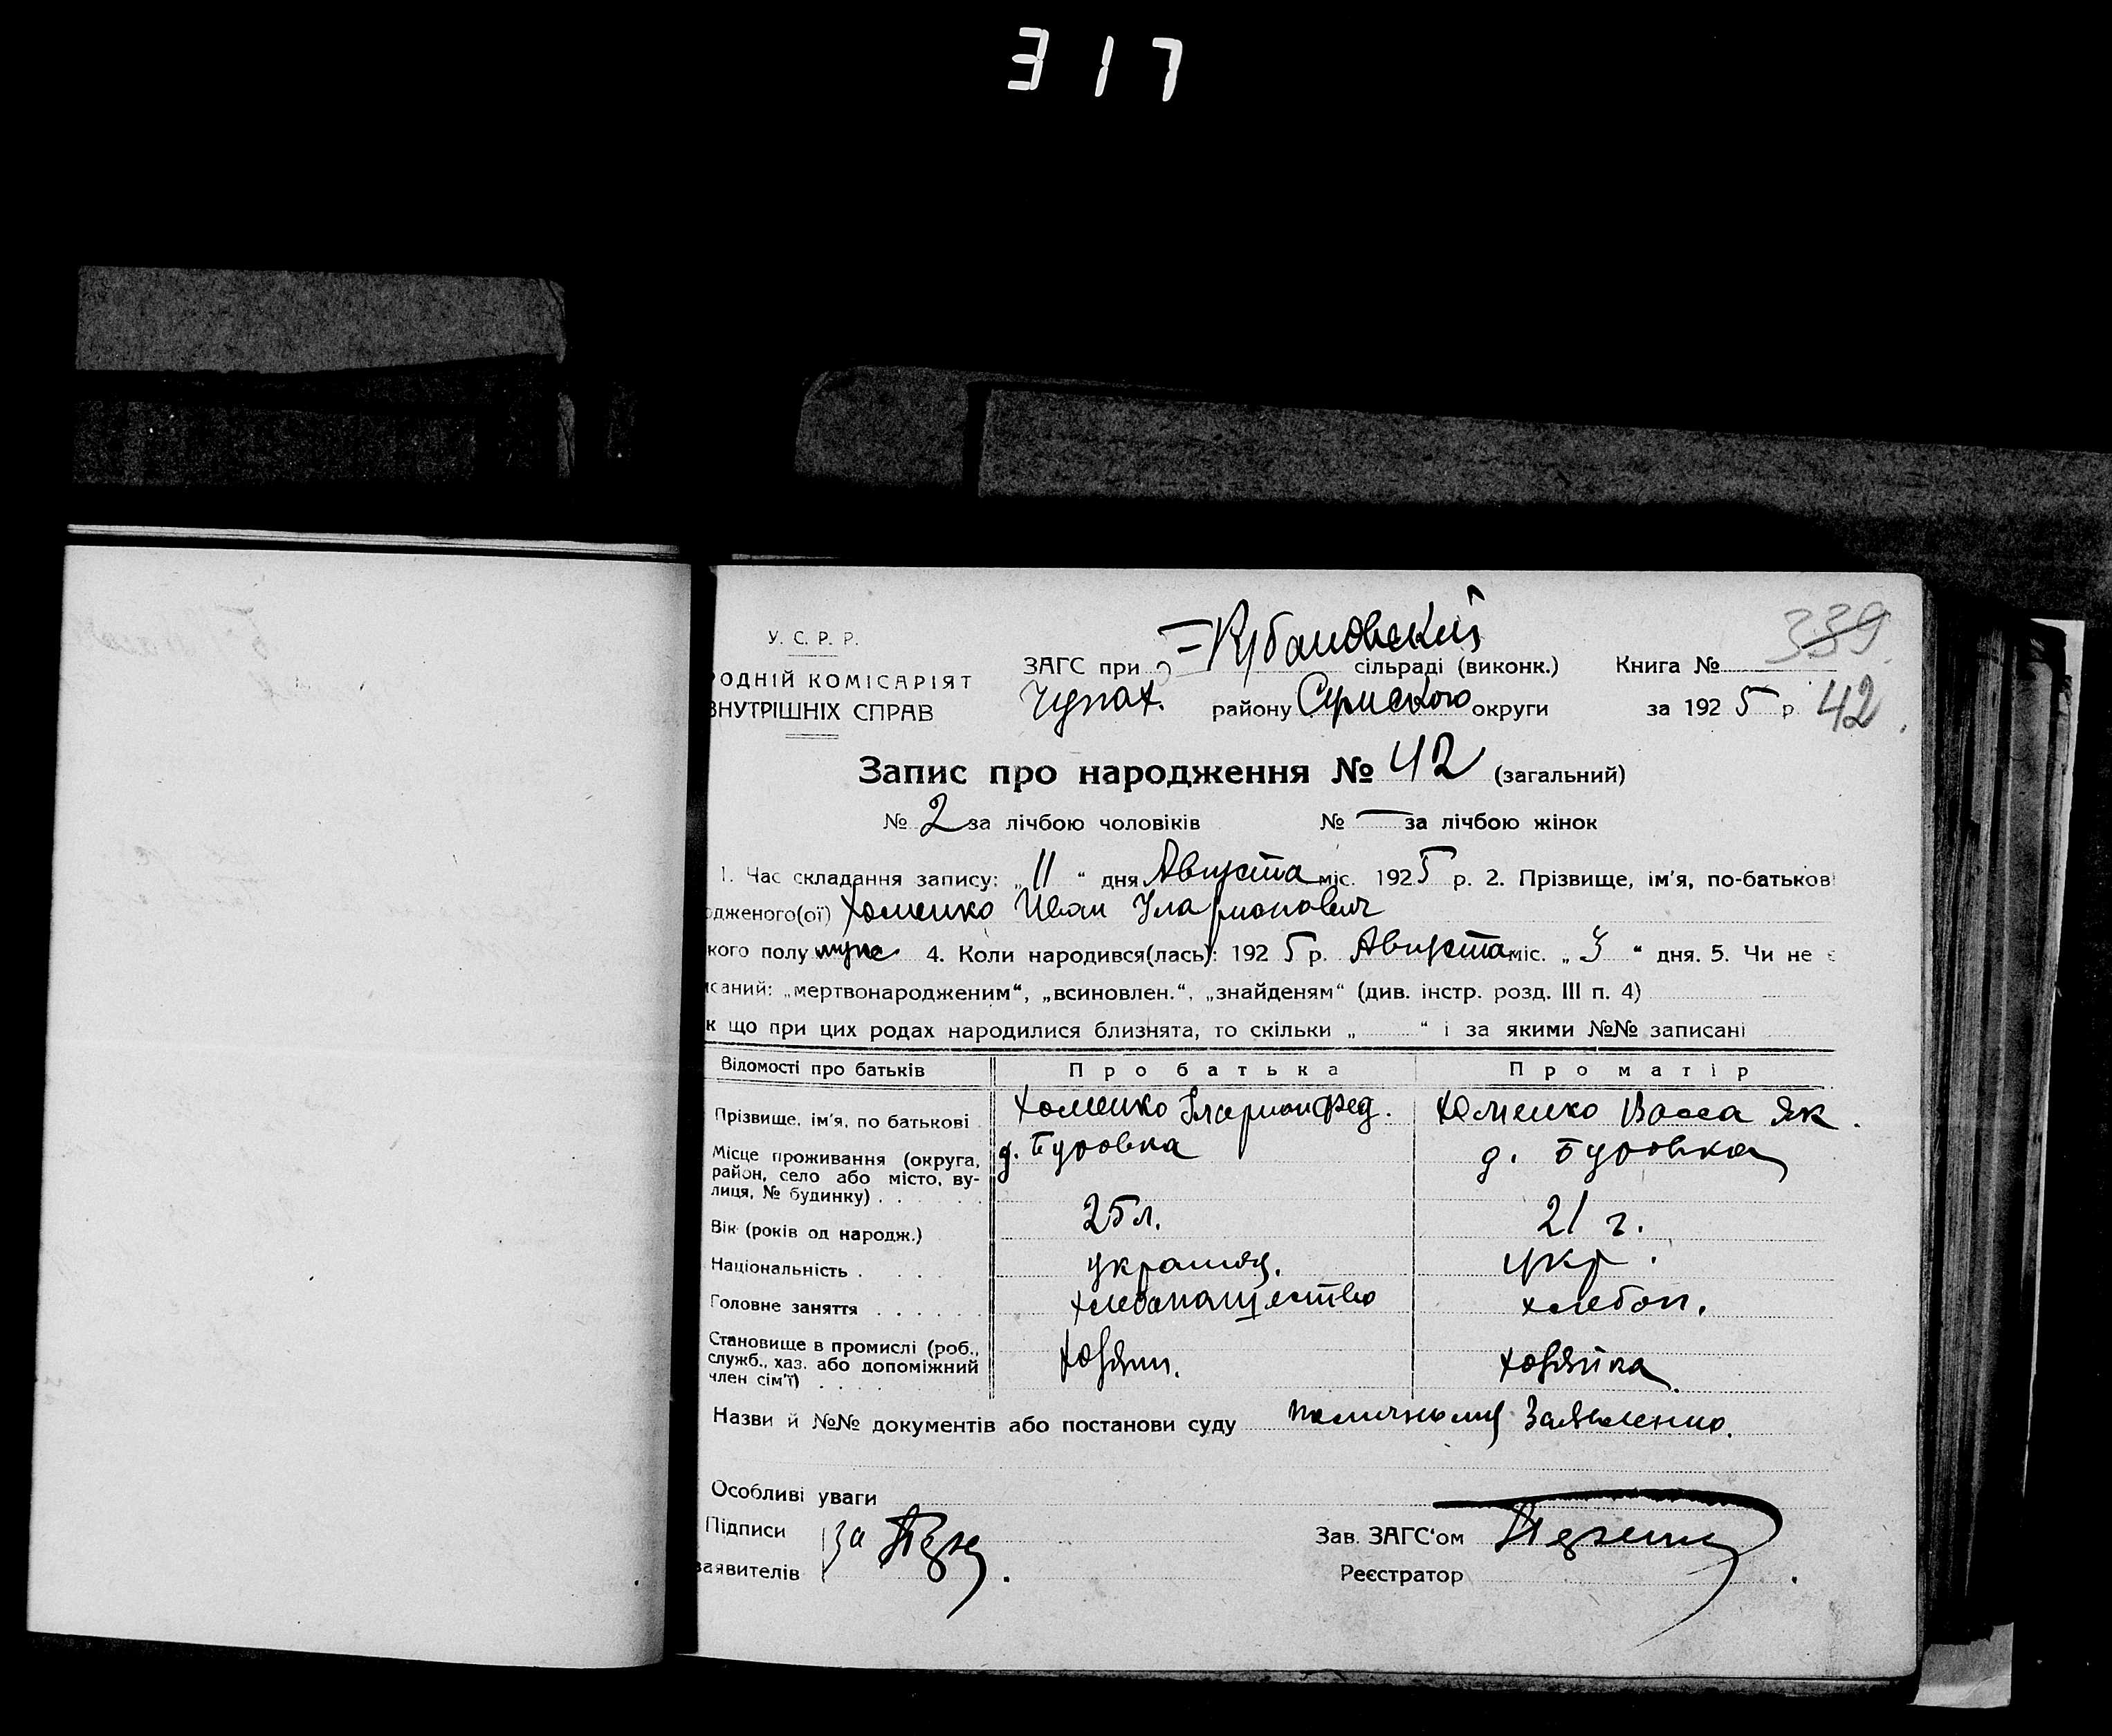 317
У. С. Р. Р.
РОДНІЙ КОМІСАРІЯТ
ВНУТРІШНІХ СПРАВ
ЗАГС при Кубановский сільраді (виконк.) Книга № 339
Чупах. району Сумского округи за 1925 р. 42
Запис про народження № 42 (загальний)
№ 2 за лічбою чоловіків № — за лічбою жінок
1. Час складання запису: „11“ дня Августа міс. 1925 р. 2. Прізвище, ім'я, по-батькові
одженого(ої) Хоменко Иван Иларионович
кого полу муж 4. Коли народився(лась): 1925 р. Августа міс. „3“ дня. 5. Чи не є
исаний: „мертвонародженим“, „всиновлен.“, „знайденям“ (див. інстр. розд. III п. 4)
к що при цих родах народилися близнята, то скільки „ “ і за якими №№ записані
Відомості про батьків Про батька Про матір
Прізвище, ім'я, по батькові Хоменко Иларион Фед. Хоменко Васса Як.
Місце проживання (округа, район, село або місто, вулиця, № будинку) д. Буровка д. Буровка
Вік (років од народж.) 25 л. 21 г.
Національність украинц. укр.
Головне заняття хлебопашество хлебоп.
Становище в промислі (роб., служб., хаз. або допоміжний член сім'ї) хозяин. хозяйка
Назви й №№ документів або постанови суду по личному заявлению.
Особливі уваги
Підписи за
заявителів
Зав. ЗАГС'ом
Реєстратор